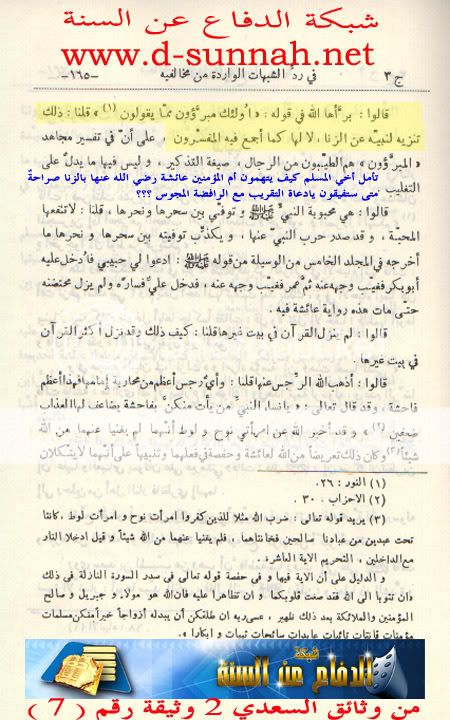 شبكة الدفاع عن السنة
www.d-sunnah.net
ج ٣ في رد الشبهات الواردة من مخالفيه -١٦٥-
قالوا : برّأها الله في قوله : « اُولئك مبرّؤون ممّا يقولون (١) » قلنا : ذلك
تنزيه لنبيّه عن الزنا ، لا لها كما أجمع فيه المفسّرون ، على أنّ في تفسير مجاهد
« المبرّؤون » هم الطيّبون من الرجال ، صيغة التذكير ، و ليس فيها ما يدلّ على
التغليب
تأمل أخي المسلم كيف يتهمون أم المؤمنين عائشة رضي الله عنها بالزنا صراحة
متى ستفيقون يادعاة التقريب مع الرافضة المجوس ؟؟؟
قالوا : هي محبوبة النبيّ ﷺ و توفّي بين سحرها و نحرها ، قلنا : لا تنفعها
المحبّة ، و قد صدر حرب النبيّ عنها ، و يكذّب توفيته بين سحرها و نحرها ما
أخرجه في المجلد الخامس من الوسيلة من قوله ﷺ : ادعوا لي حبيبي فاُدخل عليه
أبو بكر فغيّب وجهه عنه ثمّ عمر فغيّب وجهه عنه ، فدخل عليّ فسارّه و لم يزل محتضنه
حتّى مات هذه رواية عائشة فيه .
قالوا : لم ينزل القرآن في بيت غيرها قلنا : كيف ذلك و قد نزل أكثر القرآن
في بيت غيرها .
قالوا : أذهب الله الرجس عنها قلنا : و أيّ رجس أعظم من محاربة إمامها فهذا أعظم
فاحشة ، و قد قال تعالى : « يا نساء النبيّ من يأت منكنّ بفاحشة يضاعف لها العذاب
ضعفين (٢) » و قد أخبر الله عن امرأتي نوح و لوط أنّهما لم يغنيا عنهما من الله
شيئاً (٣) و كان ذلك تعريضاً من الله لعائشة و حفصة في فعلهما و تنبيهاً على أنّهما لا يتّكلان
(١) النور : ٢٦ .
(٢) الاحزاب : ٣٠ .
(٣) يريد قوله تعالى : ضرب الله مثلا للذين كفروا امرأت نوح و امرأت لوط ، كانتا
تحت عبدين من عبادنا صالحين فخانتاهما ، فلم يغنيا عنهما من الله شيئاً و قيل ادخلا النار
مع الداخلين ، التحريم الاية العاشرة .
و الدليل على أن الاية فيها و فى حفصة قوله تعالى فى صدر السورة النازلة فى ذلك
« ان تتوبا الى الله فقد صغت قلوبكما و ان تظاهرا عليه فان الله هو مولاه و جبريل و صالح
المؤمنين و الملائكة بعد ذلك ظهير ، عسى ربه ان طلقكن أن يبدله أزواجاً خيراً منكن مسلمات
مؤمنات قانتات تائبات عابدات سائحات ثيبات و ابكارا » .
شبكة
الدفاع عن السنة
من وثائق السعدي 2 وثيقة رقم ( 7 )